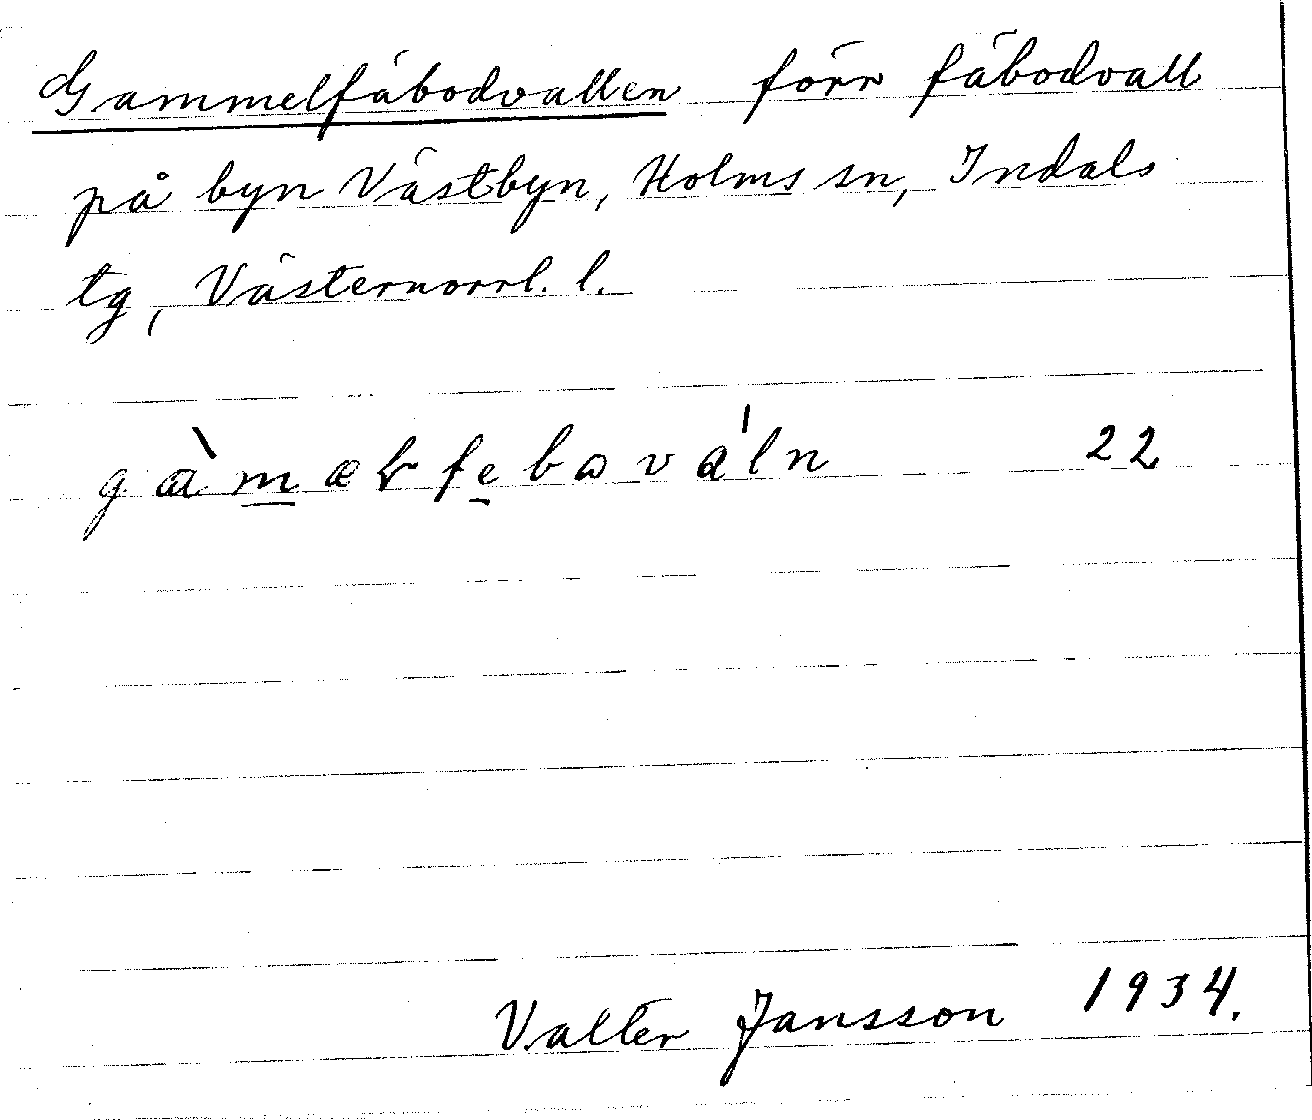 Gammelfäbodvallen förr fäbodvall
på byn Västbyn, Holms sn, Indals
tg, Västernorrl. l.
22
Valter Jansson 1934.